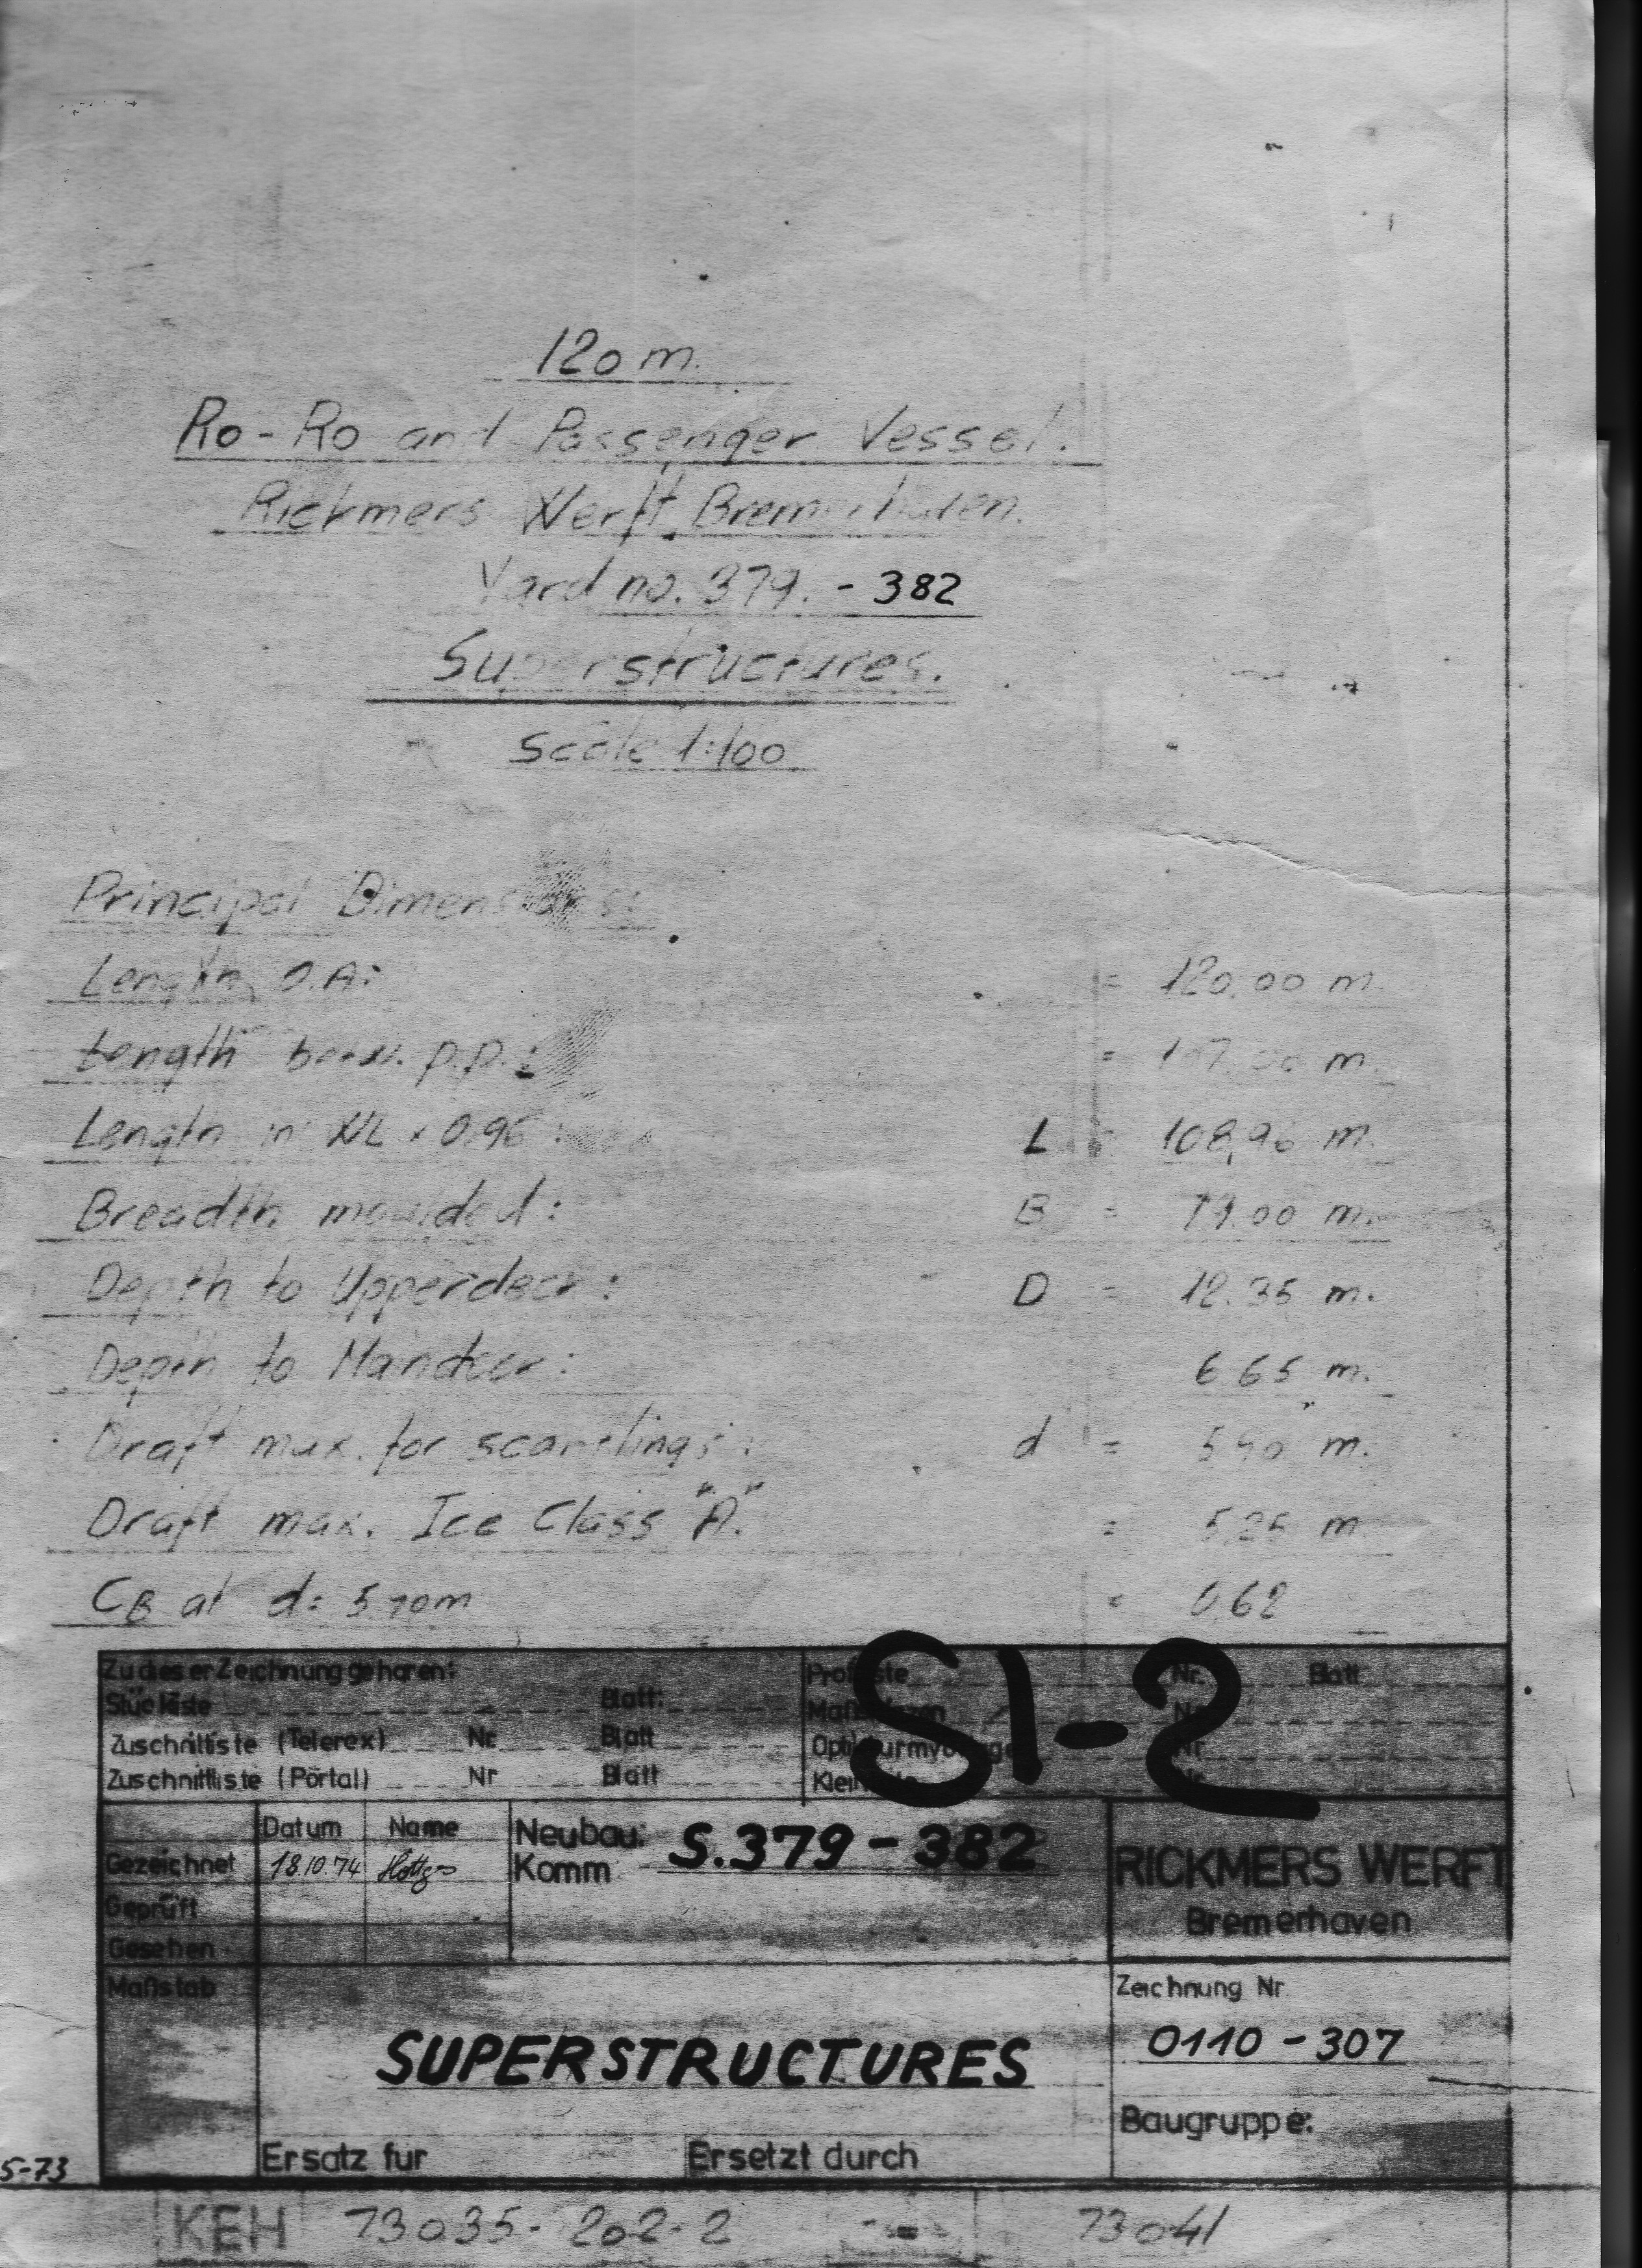 120 m.
Ro-Ro and Passenger Vessel.
Rickmers Werft, Bremerhaven.
Yard no. 379. - 382
Superstructures.
Scale 1:100
Principal Dimensions:
Length O.A: = 120.00 m.
Length betw. p.p.: = m.
Length in WL × 0.96: L = 108,96 m.
Breadth moulded: B = m.
Depth to Upperdeck: D = 12.35 m.
Depth to Maindeck: 6.65 m.
Draft max. for scantlings: d = m.
Draft max. Ice Class "A". = 5,25 m
CB at d: = 0.62
S1-2
Zu dieser Zeichnung gehören:
Stückliste Blatt:
Zuschnittliste (Telerex) Nr Blatt
Zuschnittliste (Portal) Nr Blatt
Nr. Blatt
Nr
Nr
Datum Name
Gezeichnet 18.10.74
Geprüft
Gesehen
Maßstab
Neubau:
Komm S.379-382
RICKMERS WERFT
Bremerhaven
SUPERSTRUCTURES
Zeichnung Nr
0110-307
Baugruppe:
Ersatz fur Ersetzt durch
5-73
KEH 73035-202-2 - 73041